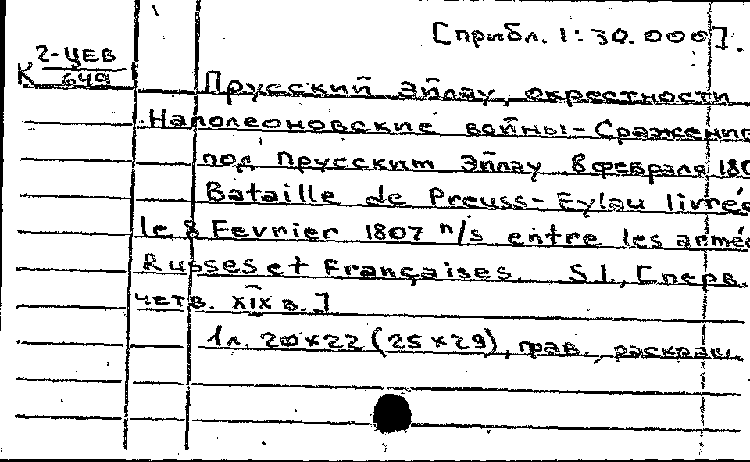 [прибл. 1:30.000].
2-ЦЕВ
К 649
Прусский Эйлау, окрестности
Наполеоновские войны-Сражение
под Прусским Эйлау 8 февраля 180
Bataille de Preuss-Eylau livrée
le 8 Fevrier 1807 n/s entre les armée
Russes et Françaises. S.l., [перв.
четв. XIX в.]
1 л. 20x22 (25x29), грав., раскраш.